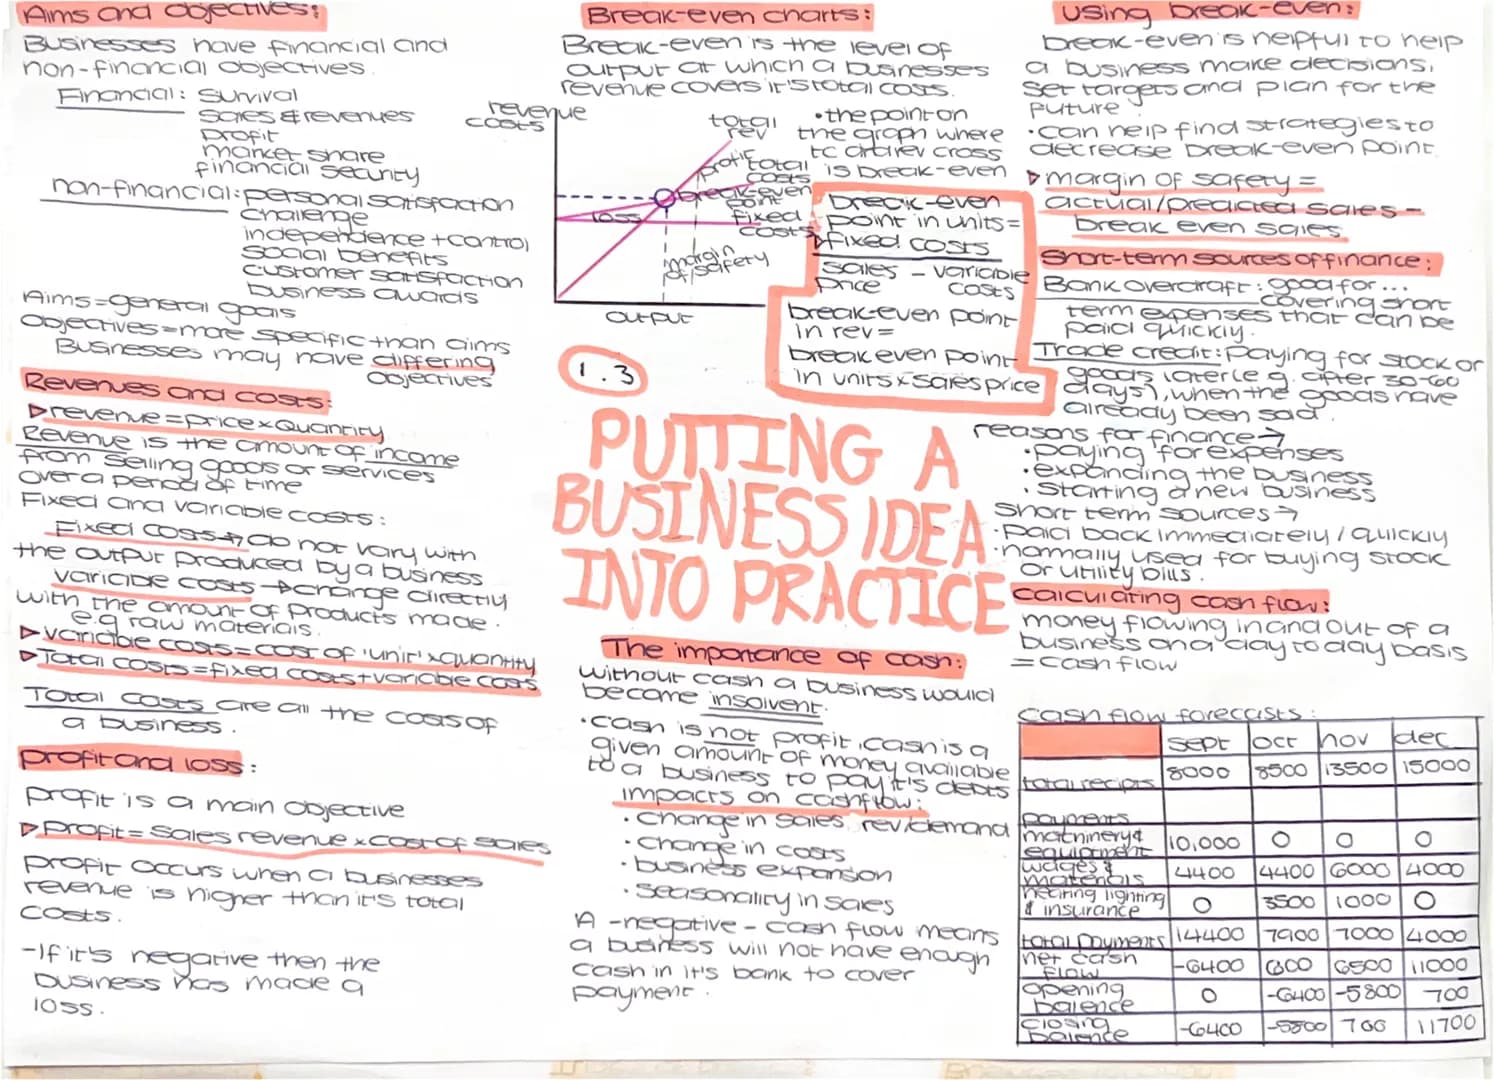 Aims and objectives:
Businesses have financial and
non-financial objectives.
Financial: Survival
Sales & revenues
profit
market share
financial security
non-financial: personal satisfaction
Challenge
independence + control
social benefits
customer satisfaction
business awards
Aims = general goals
Objectives = more specific than aims
Businesses may have differing
objectives
Revenues and costs:
revenue = price x quantity
Revenue is the amount of income
from selling goods or services
over a period of time
Fixed and variable costs:
Fixed costs → do not vary with
the output produced by a business
variable costs → change directly
with the amount of products made.
e.g raw materials.
variable costs = cost of 'unit' x quantity
Total costs = fixed costs + variable costs
Total costs are all the costs of
a business.
profit and loss:
profit is a main objective
Profit = Sales revenue x cost of sales
profit occurs when a businesses
revenue is higher than it's total
costs.
- If it's negative then the
business has made a
loss.
Break-even charts:
Break-even is the level of
output at which a businesses
revenue covers it's total costs.
revenue
costs
total
rev
profit
total
costs
break-even
point
fixed
costs
loss
margin
of safety
OUTPUT
• the point on
the graph where
tc and rev cross
is break-even
break-even
point in units =
fixed costs
sales price – variable costs
break-even point
in rev =
break even point
in units x sales price
1.3
PUTTING A
BUSINESS IDEA
INTO PRACTICE
The importance of cash:
without cash a business would
become insolvent.
• cash is not profit, cash is a
given amount of money available
to a business to pay it's debts
impacts on cashflow:
• Change in sales rev/demand
• change in costs
• business expansion
• seasonality in sales
A - negative - cash flow means
a business will not have enough
cash in it's bank to cover
payment.
Using break-even:
break-even is helpful to help
a business make decisions,
set targets and plan for the
future
• can help find strategies to
decrease break-even point.
margin of safety =
actual/predicted sales -
break even sales
Short-term sources of finance:
Bank overdraft: good for...
covering short
term expenses that can be
paid quickly.
Trade credit: paying for stock or
goods later (e.g. after 30-60
days), when the goods have
already been sold.
reasons for finance →
• paying for expenses
• expanding the business
• starting a new business
short term sources →
• paid back immediately / quickly
• normally used for buying stock
or utility bills.
Calculating cash flow:
money flowing in and out of a
business on a day to day basis
= cash flow
Cash flow forecasts:
sept oct nov dec
total recipts 8000 8500 13500 15000
payments
machinery & equiptment 10,000 0 0 0
wages & materials 4400 4400 6000 4000
heating lighting & insurance 0 3500 1000 0
total payments 14400 7900 7000 4000
net cash flow -6400 600 6500 11000
opening balence 0 -6400 -5800 700
closing balence -6400 -5800 700 11700